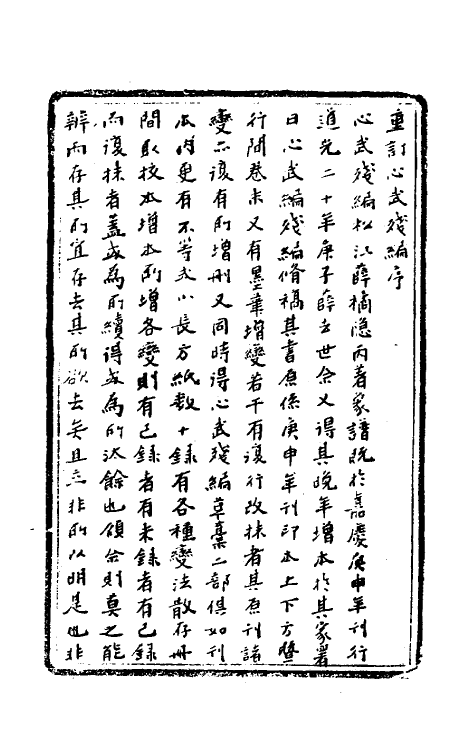 重訂心武殘編序
心武殘編松江薛橘隱丙著象譜既於嘉慶庚申年刊行
道光二十年庚子薛去世余又得其晚年增本於其家署
曰心武編殘編脩稿其書原係庚申年刊印本上下方暨
行間卷末又有墨筆增變若干有復行改抹者其原刊諸
變亦復有所增刪又同時得心武殘編草藁二部俱如刊
本內更有不等或小長方紙數十錄有各種變法散存冊
間取校本增本所增各變則有已錄者有未錄者有已錄
而復抹者蓋或為所續得或為所汰餘也顧余則莫之能
辨而存其所宜存去其所欲去矣且亦非所以明是也非